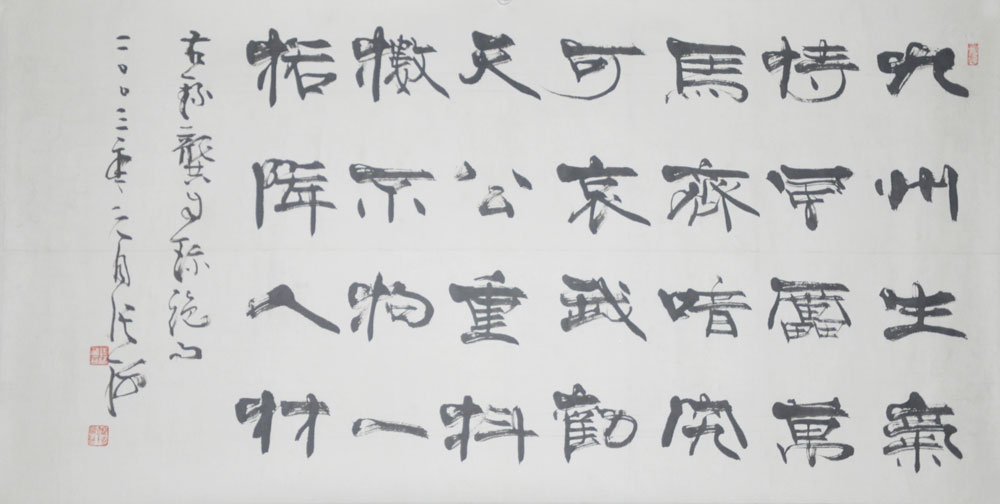 九州生氣
恃風靁萬
馬齊喑究
可哀我勸
天公重抖
擻不拘一
格降人材
右錄龔自珍絕句
二〇〇三年元月張海